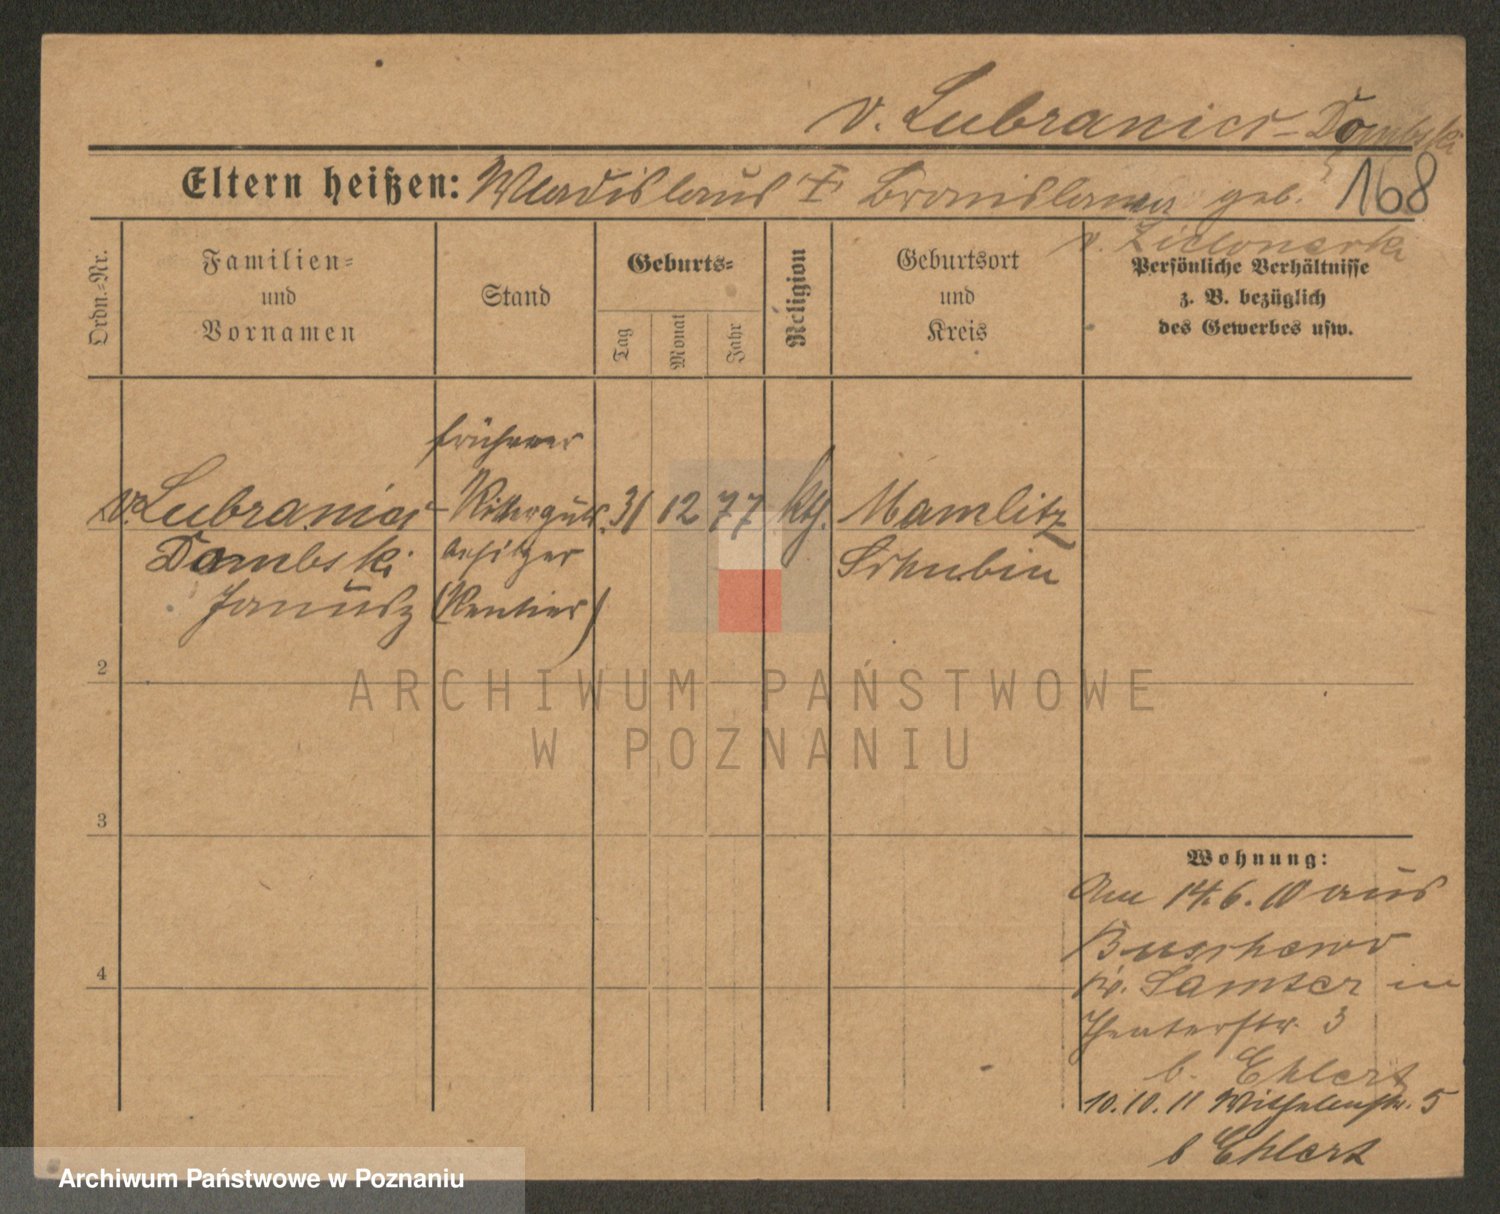 v. Lubranics-Dombski
168
Eltern heißen: Wladislaus & Bronislawa geb.
v. Zielonacka
Ordn.-Nr.
Familien-
und
Vornamen
Stand
Geburts-
Tag
Monat
Jahr
Religion
Geburtsort
und
Kreis
Persönliche Verhältnisse
z. B. bezüglich
des Gewerbes usw.
früherer
v. Lubranics- Ritterguts 31 12 77 kth. Mamlitz
Dombski besitzer Schubin
Janusz (Rentier)
2
3
4
Wohnung:
Am 14.6.10 aus
Buschewo
Kr. Samter in
Theaterstr. 3
b. Ehlert
10.10.11 Wilhelmstr. 5
b Ehlert
ARCHIWUM PAŃSTWOWE
W POZNANIU
Archiwum Państwowe w Poznaniu